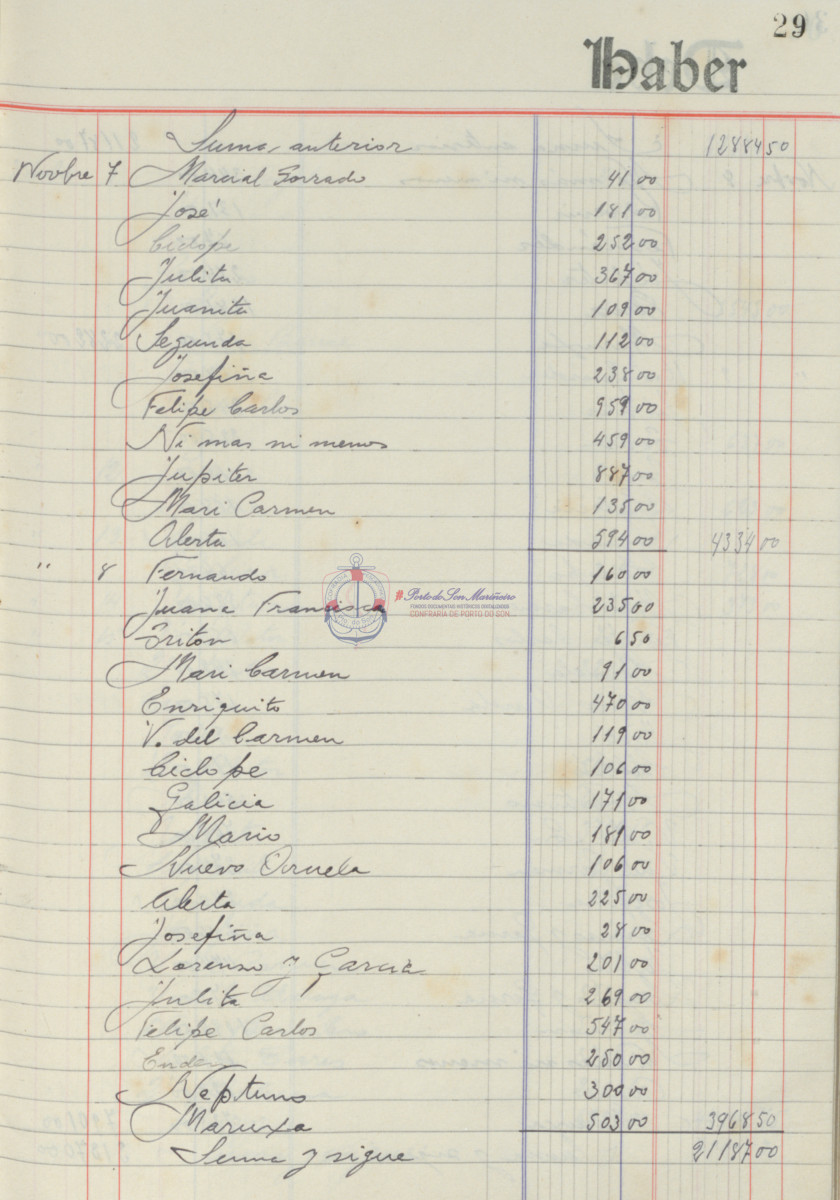 29
Haber
Suma anterior 12884 50
Novbre 7 Marcial Dorrado 41 00
José 181 00
Ciclope 252 00
Julita 367 00
Juanita 109 00
Segunda 112 00
Josefiña 238 00
Felipe Carlos 959 00
Ni mas ni menos 459 00
Jupiter 887 00
Mari Carmen 135 00
Alerta 594 00 4334 00
" 8 Fernando 160 00
Juana Francisca 235 00
#PortodoSonMariñeiro
FONDOS DOCUMENTAIS HISTÓRICOS DIXITALIZADOS
CONFRARIA DE PORTO DO SON
Triton 6 50
Mari Carmen 91 00
Enriquito 470 00
V. del Carmen 119 00
Ciclope 106 00
Galicia 171 00
Mario 181 00
Nuevo 106 00
Alerta 225 00
Josefiña 28 00
Lorenzo y Garcia 201 00
Julita 269 00
Felipe Carlos 547 00
250 00
Neptuno 300 00
Maruxa 503 00 3968 50
Suma y sigue 21187 00